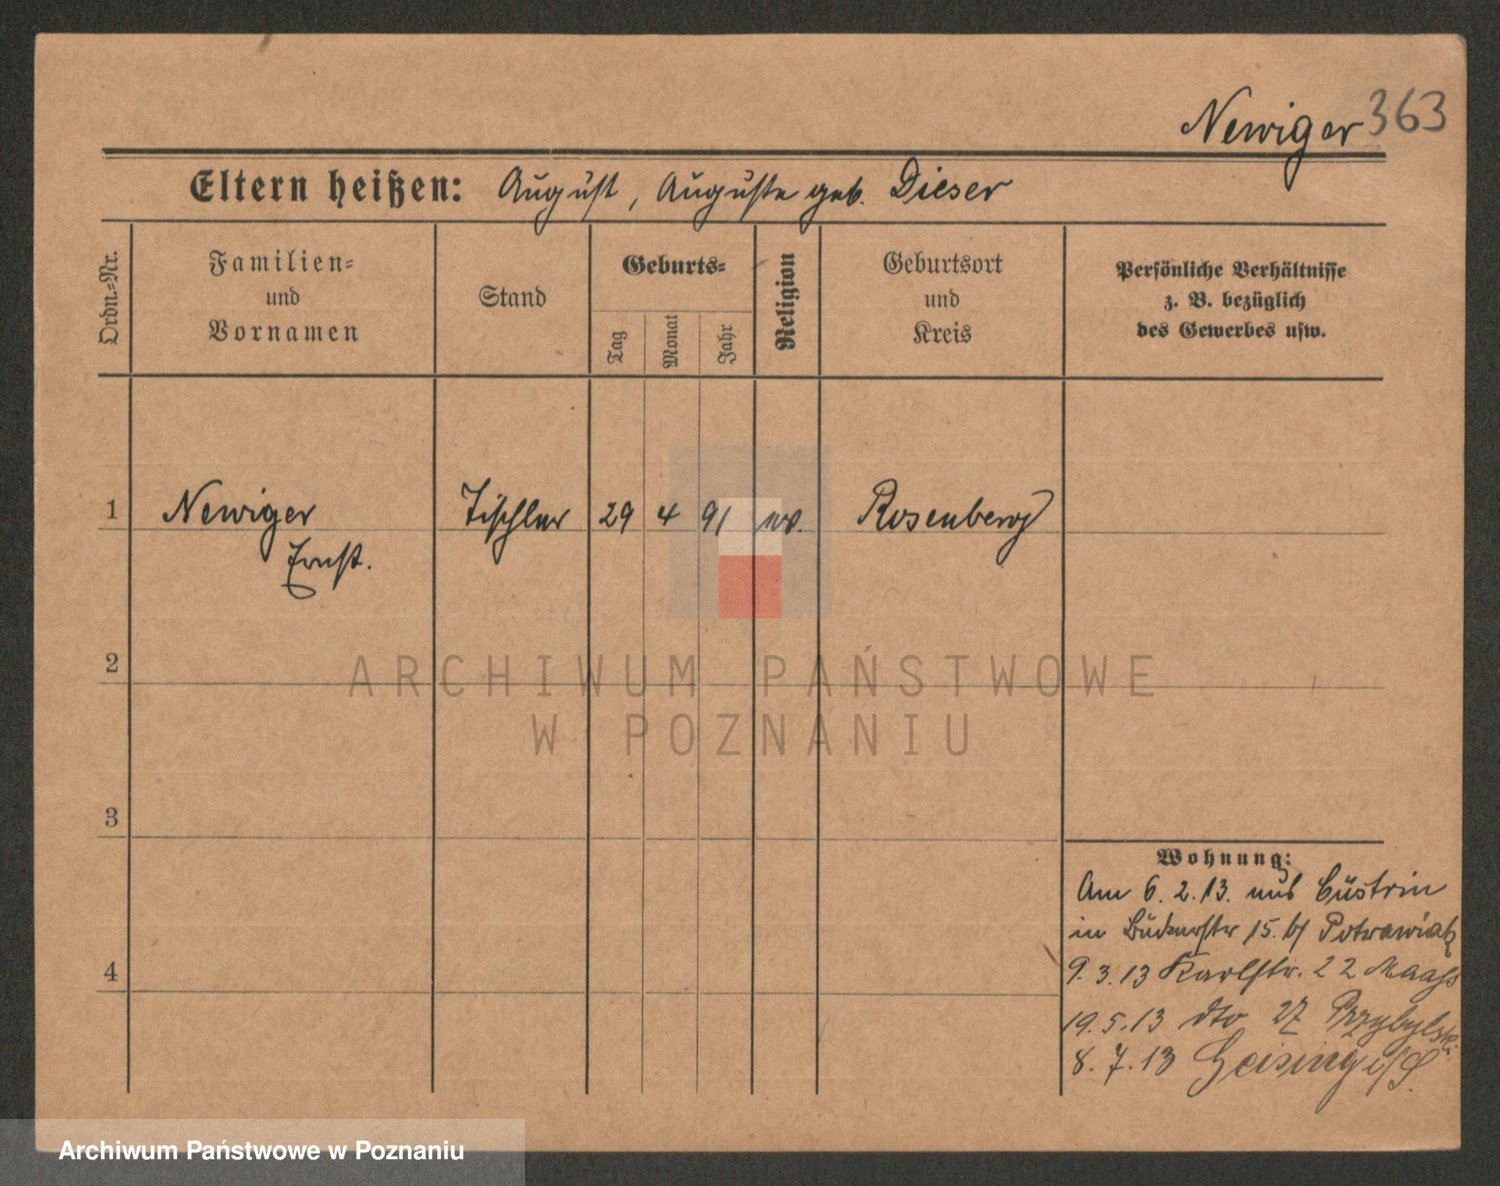 Newiger 363
Eltern heißen: August, Auguste geb. Dieser
Ordn.-Nr.
Familien-
und
Vornamen
Stand
Geburts-
Tag
Monat
Jahr
Religion
Geburtsort
und
Kreis
Persönliche Verhältnisse
z. B. bezüglich
des Gewerbes usw.
1 Newiger Tischler 29 4 91 ev. Rosenberg
Ernst.
2
3
4
Wohnung:
Am 6. 2. 13. aus Cüstrin
in 15. b/ Potrawiak
9. 3. 13 Karlstr. 22 Maass
19. 5. 13 dto 27 Przybylski
8. 7. 13 Geising i/S.
ARCHIWUM PAŃSTWOWE
W POZNANIU
Archiwum Państwowe w Poznaniu